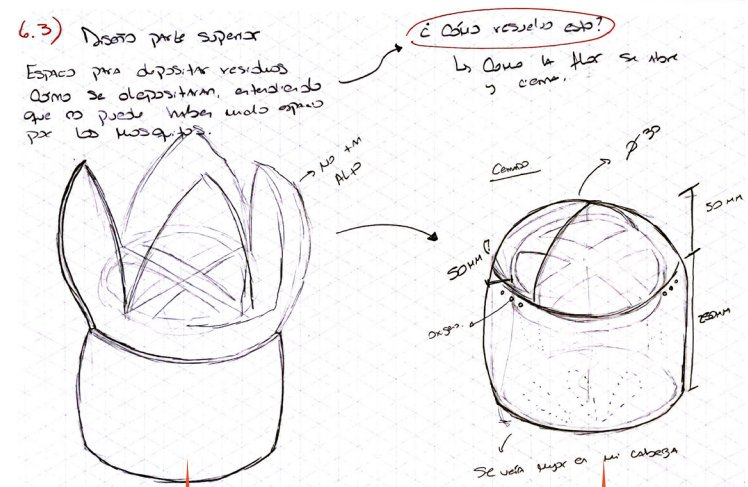 6.3) Diseño parte superior
Espacio para depositar residuos
Como se depositaran, entendiendo
que no puede haber mucho espacio
por los mosquitos.
¿Cómo resuelvo esto?
Como la flor se abre
y cierra.
No + 
ALTO
Cerrado
Ø 30
50 MM
50 MM
250MM
oxigeno.
Se veía mejor en mi cabeza